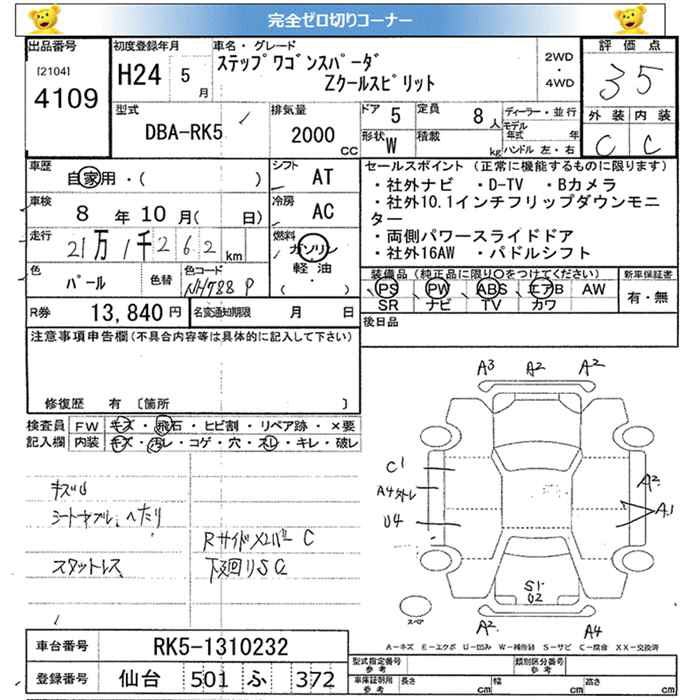 完全ゼロ切りコーナー
出品番号
[2104]
4109
初度登録年月
H24 5月
車名・グレード
ステップワゴンスパーダ
Zクールスピリット
2WD
・
4WD
評価点
3 5
外装 内装
C C
型式
DBA-RK5
排気量
2000
CC
ドア 5
定員 8人
形状 W
積載 kg
ディーラー・並行
モデル
年式 年
ハンドル 左・右
車歴
自家用・( )
車検 8年10月( 日)
走行 21万1千262km
色 パール
色替
色コード
NH788P
シフト AT
冷房 AC
燃料 ガソリン・
軽油
( )
セールスポイント (正常に機能するものに限ります)
・社外ナビ ・D-TV ・Bカメラ
・社外10.1インチフリップダウンモニ
ター
・両側パワースライドドア
・社外16AW ・パドルシフト
装備品(純正品に限り○をつけてください)
PS PW ABS エアB AW
SR ナビ TV カワ
新車保証書
有・無
R券 13,840円
名変通知期限 月 日
後日品
注意事項申告欄(不具合内容等は具体的に記入して下さい)
修復歴 有 〔箇所 〕
検査員 FW キズ・飛石・ヒビ割・リペア跡・×要
記入欄 内装 キズ・汚レ・コゲ・穴・スレ・キレ・破レ
シート ヘたり
スタットレス
Rサイド C
下廻りSC
A3 A2 A2
C1
A4
U4
A2
A1
S1
U2
スペア
A2 A4
A-キズ E-エクボ U-凹み W-補修跡 S-サビ C-腐食 XX-交換済
車台番号 RK5-1310232
登録番号 仙台 501 ふ 372
型式指定番号
参考
類別区分番号
参考
車庫証明用
参考
長さ cm 幅 cm 高さ cm